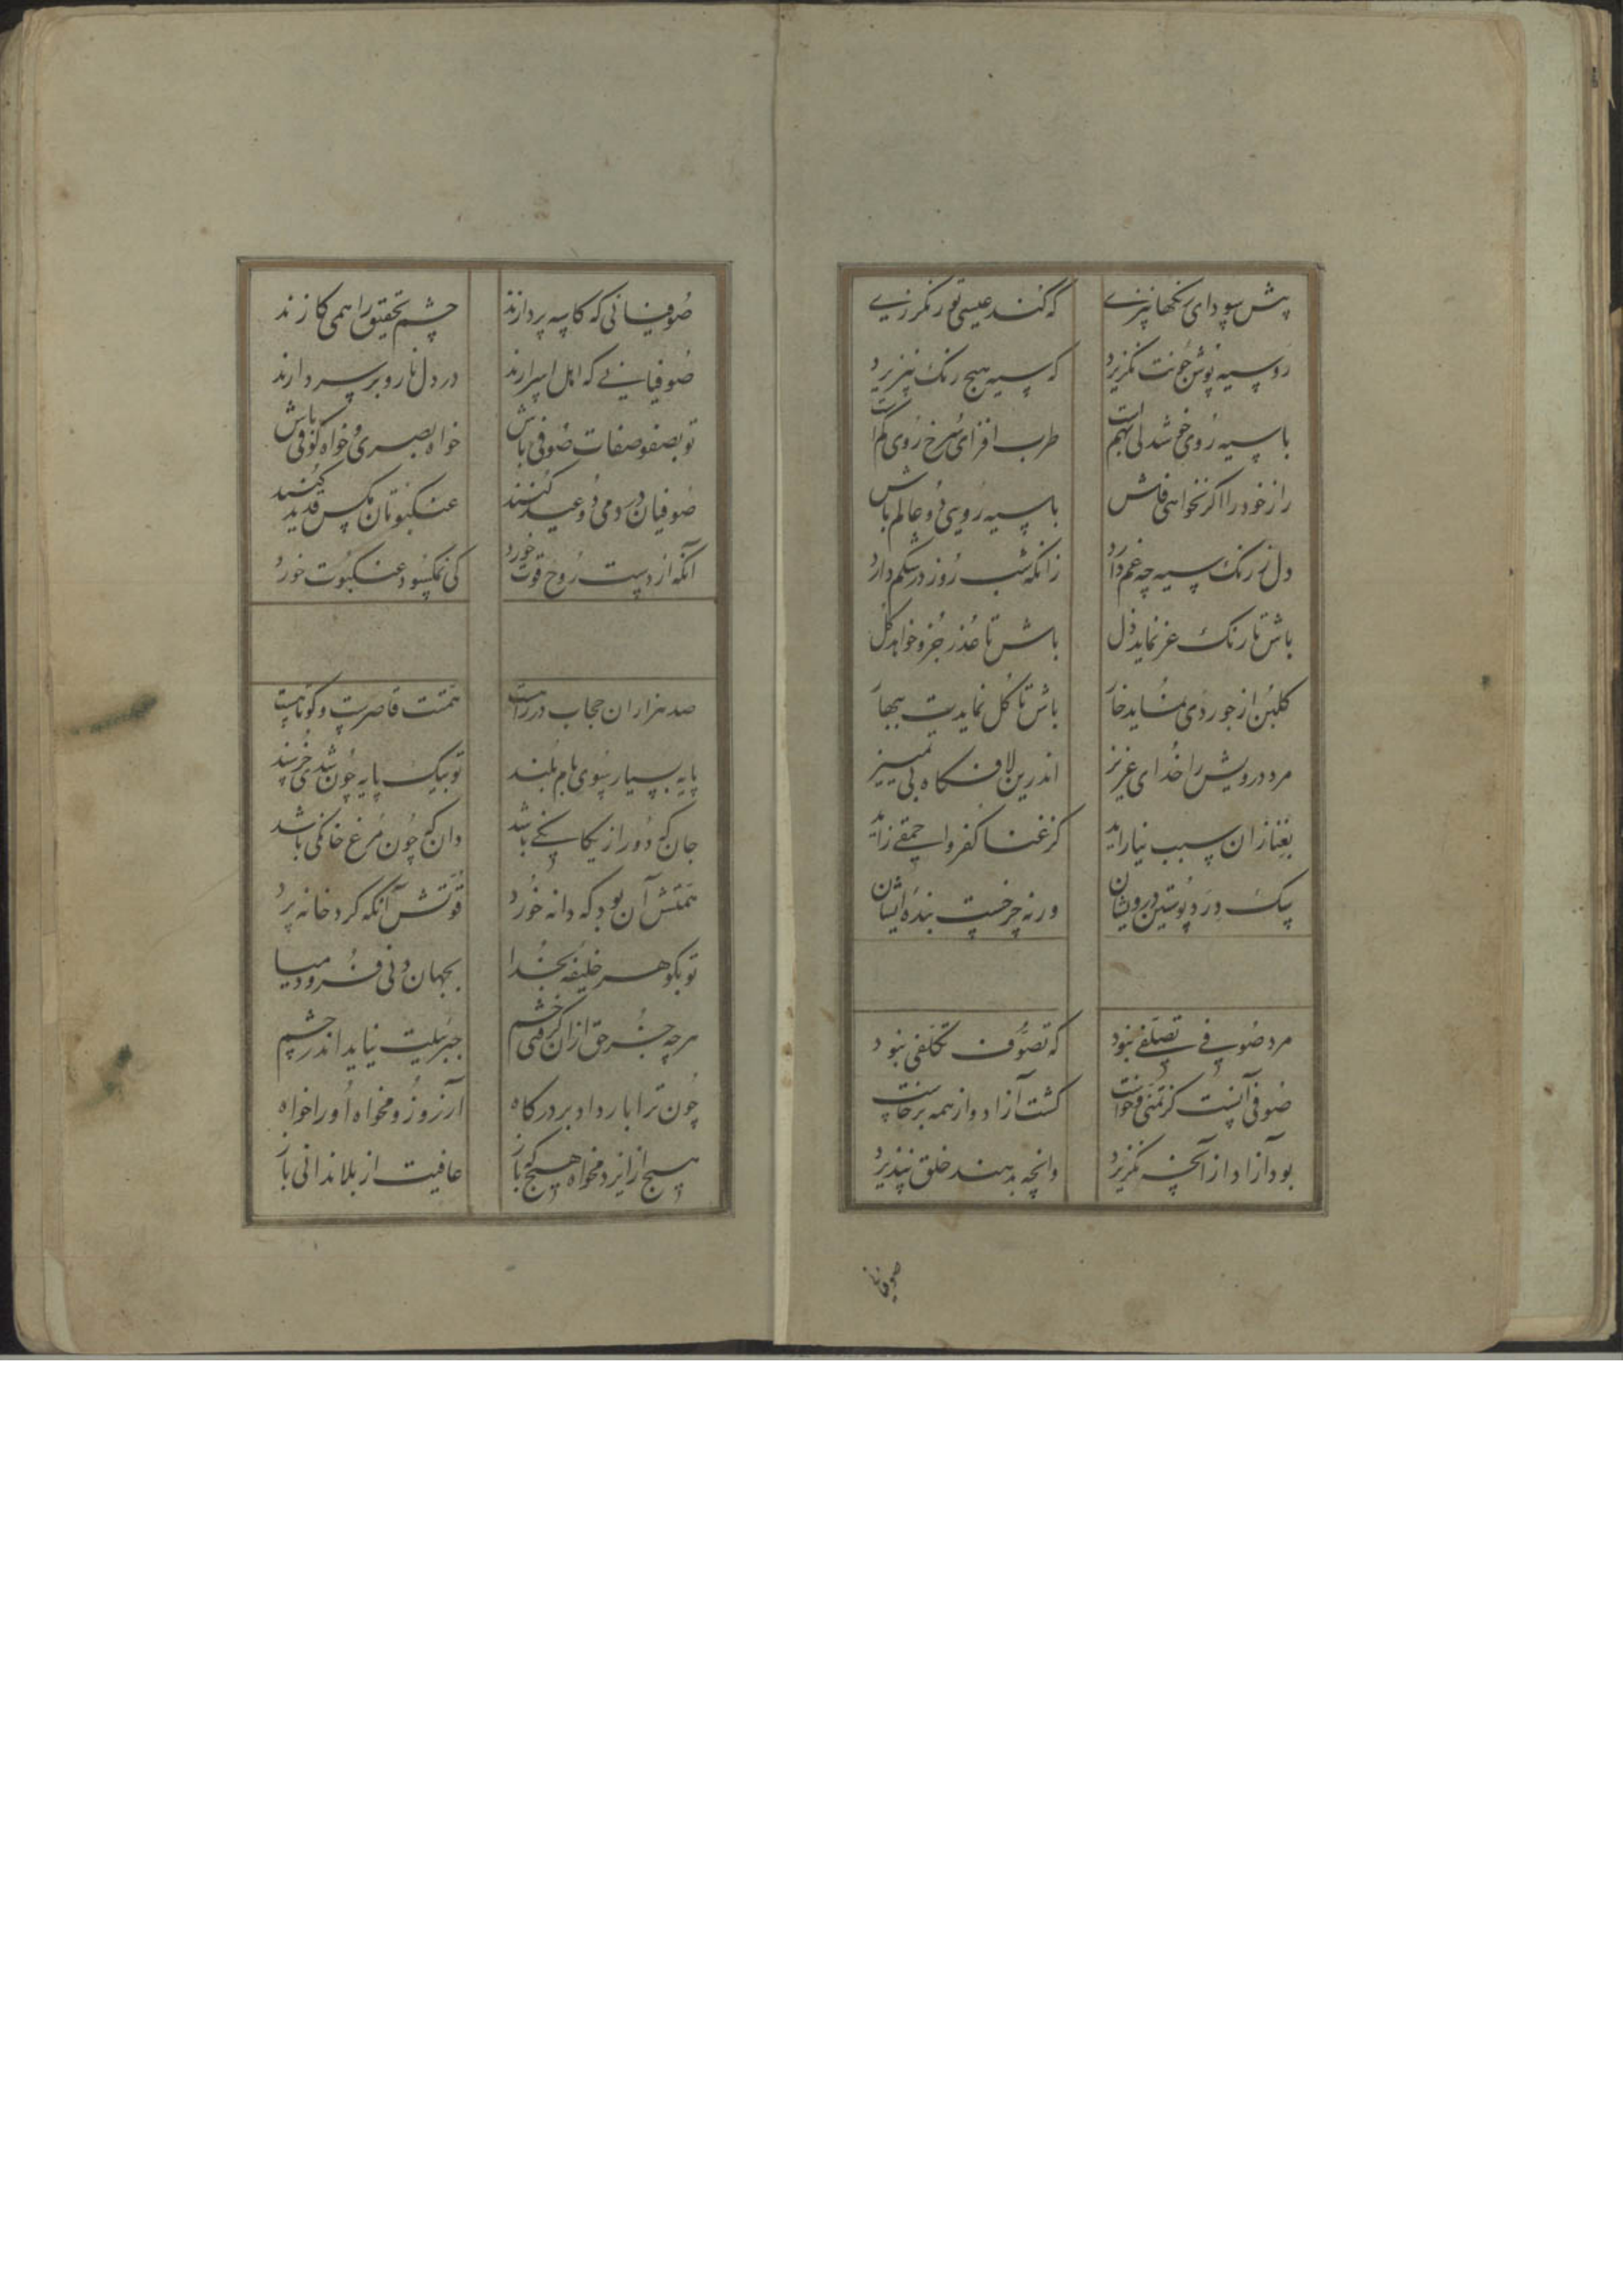 پیش سودای رنگها نپزی که کند عیسی تو رنگرزی
رو سیه پوش چونت نگزیرد که سیه هیچ رنگ نپذیرد
با سیه روی خوشدلی بهمست طرب افزای سرخ روی کمست
راز خود را اگر نخواهی فاش با سیه رویی دو عالم باش
دل ز رنگ سیه چه غم دارد زانکه شب روز در شکم دارد
باش تا رنگ عز نماید ذل باش تا عذر جزو خواهد کل
گلبن از جور دی نماید خار باش تا گل نمایدت ببهار
مرد درویش را خدای عزیز اندرین لافگاه بی تمییز
بغنا زان سبب نیاراید کز غنا کفر و احمقی زاید
سگ درد پوستین درویشان ورنه چرخست بنده ایشان
مرد صوفی تصلفی نبود که تصوف تکلفی نبود
صوفی آنست کز تمنی و خواست گشت آزاد و از همه برخاست
بود آزاد از آنچه نگزیرد وانچه بدهند خلق نپذیرد
صوفیانی
صوفیانی که کاسه پردازند چشم تحقیق را همی گازند
صوفیانی که اهل اسرارند در دل نار و بر سر دارند
تو بصفو صفات صوفی باش خواه بصری و خواه کوفی باش
صوفیان در دمی دو عید کنند عنکبوتان مگس قدید کنند
آنکه از دست روح قوت خورد کی نمکسود عنکبوت خورد
صد هزاران حجاب در راهست همتت قاصرست و کوتاهست
پایه بسیار سوی بام بلند تو بیک پایه چون شدی خرسند
جان که دور از یگانگی باشد دان که چون مرغ خانگی باشد
همتش آن بود که دانه خورد قوتش آنکه گرد خانه پرد
تو بگوهر خلیفه بخدا بجهان دنی فرو میا
هرچه جز حق ازان گرفتی خشم جبرئیلت نیاید اندر چشم
چون ترا بار داد بر درگاه آرزو زو مخواه او را خواه
هیچ از ایزد مخواه هیچ که باز عافیت از بلا ندانی باز